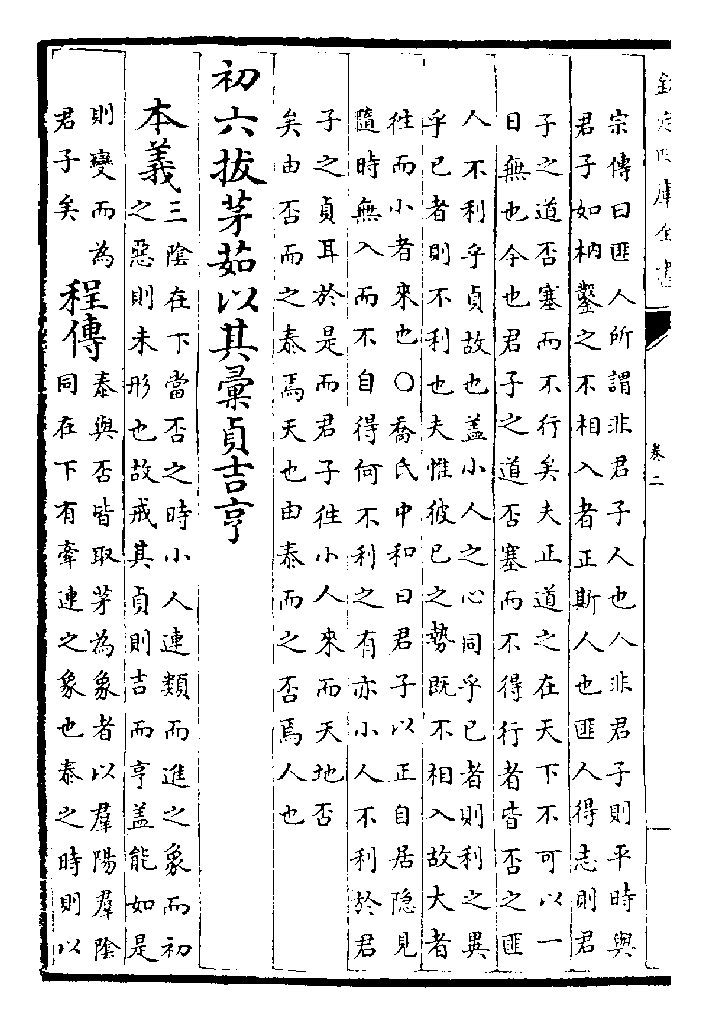 欽定四庫全書
卷二
宗傳曰匪人所謂非君子人也人非君子則平時與
君子如枘鑿之不相入者正斯人也匪人得志則君
子之道否塞而不行矣夫正道之在天下不可以一
日無也今也君子之道否塞而不得行者皆否之匪
人不利乎貞故也盖小人之心同乎已者則利之異
乎已者則不利也夫惟彼已之勢既不相入故大者
徃而小者來也○喬氏中和曰君子以正自居隐見
隨時無入而不自得何不利之有亦小人不利於君
子之貞耳於是而君子徃小人來而天地否
矣由否而之泰焉天也由泰而之否焉人也
初六拔茅茹以其彙貞吉亨
本義三陰在下當否之時小人連類而進之象而初
之惡則未形也故戒其貞則吉而亨盖能如是
則變而為
君子矣
程傳泰與否皆取茅為象者以羣陽羣陰
同在下有牽連之象也泰之時則以